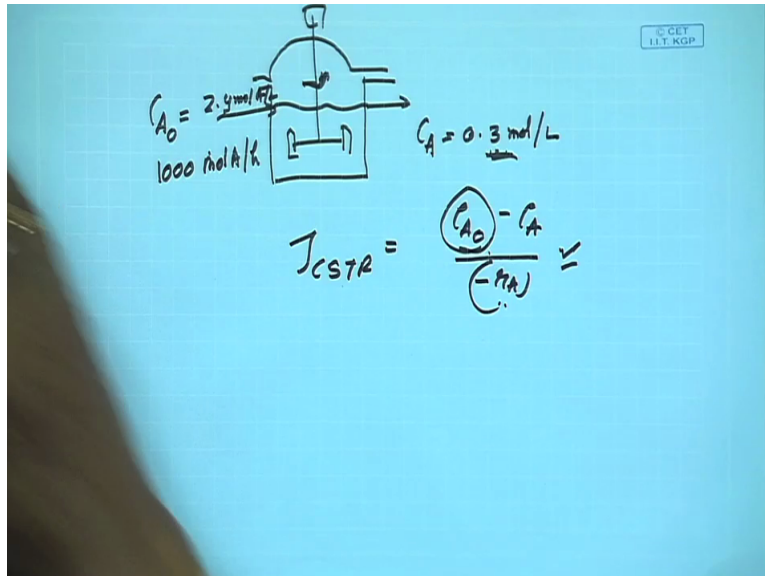 © CET
I.I.T. KGP
C_A0 = 2.4 mol A/L
1000 mol A/h
C_A = 0.3 mol/L
τ_CSTR = (C_A0 - C_A) / (-r_A)